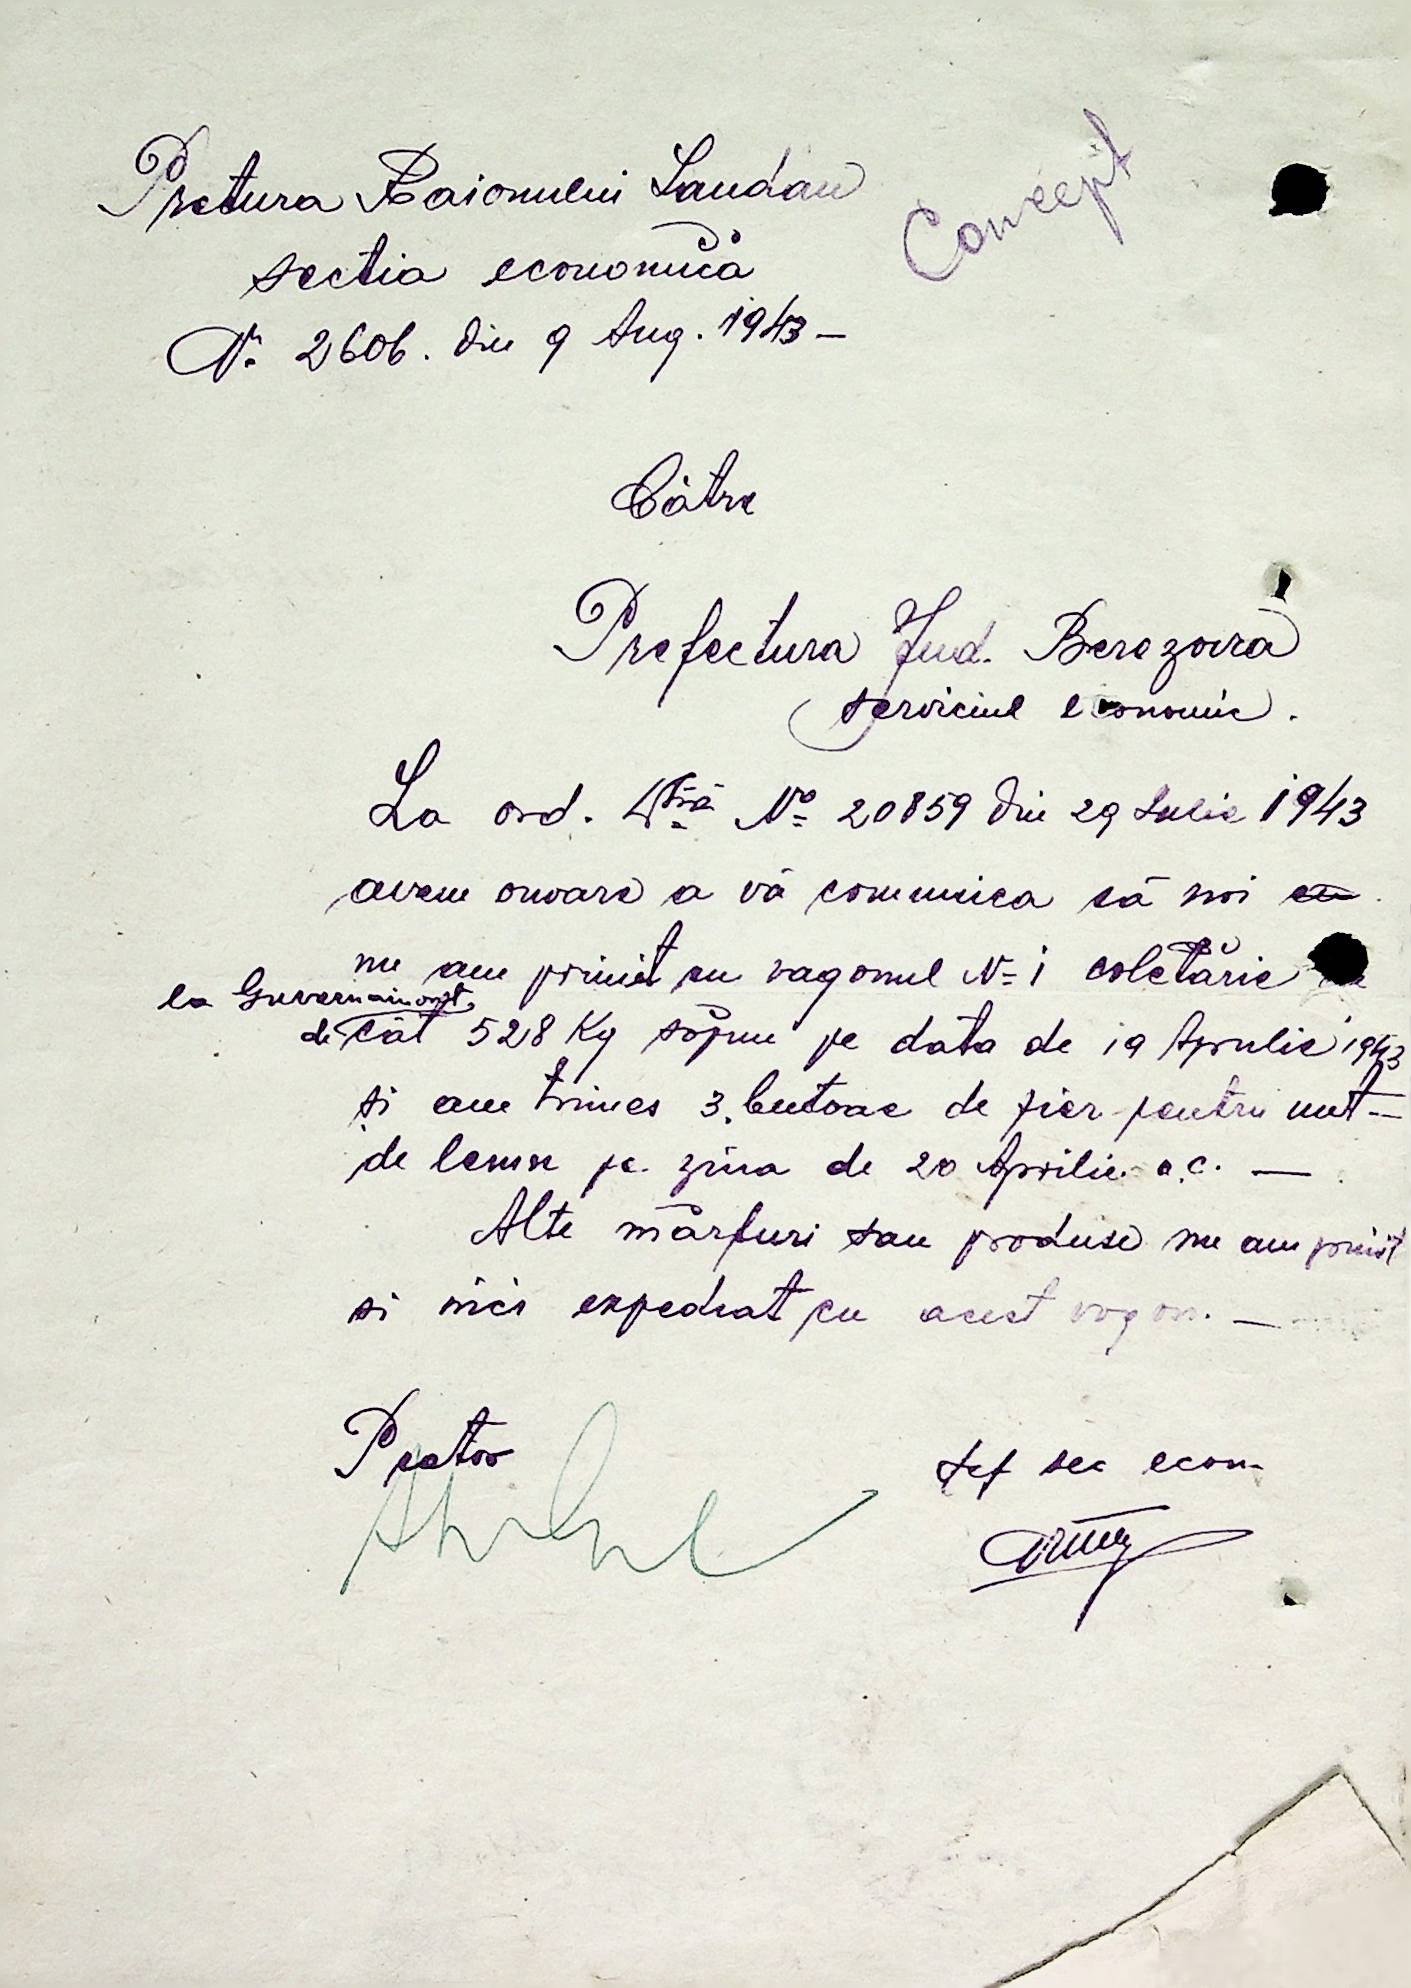 Pretura Raionului Landau
Concept
sectia economică
Nr. 2606. din 9 Aug. 1943 –
Către
Prefectura Jud. Berezovca
serviciul economic.
La ord. Dtră No 20859 din 29 Iulie 1943
avem onoare a vă comunica că noi cu
nu am primit cu vagonul No 1 coletărie
la Guvernământ
decât 528 Kg săpun pe data de 19 Aprilie 1943
și am trimes 3 butoae de fier pentru unt –
de lemn pe ziua de 20 Aprilie a.c. —
Alte mărfuri sau produse nu am primit
si nici expediat cu acest vagon. —
Pretor
șef sec econ.